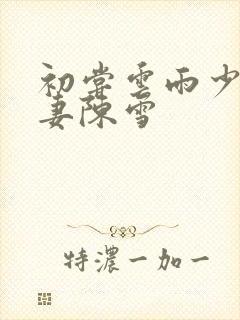 初尝雲雨少
妻陳雪
特濃一加一